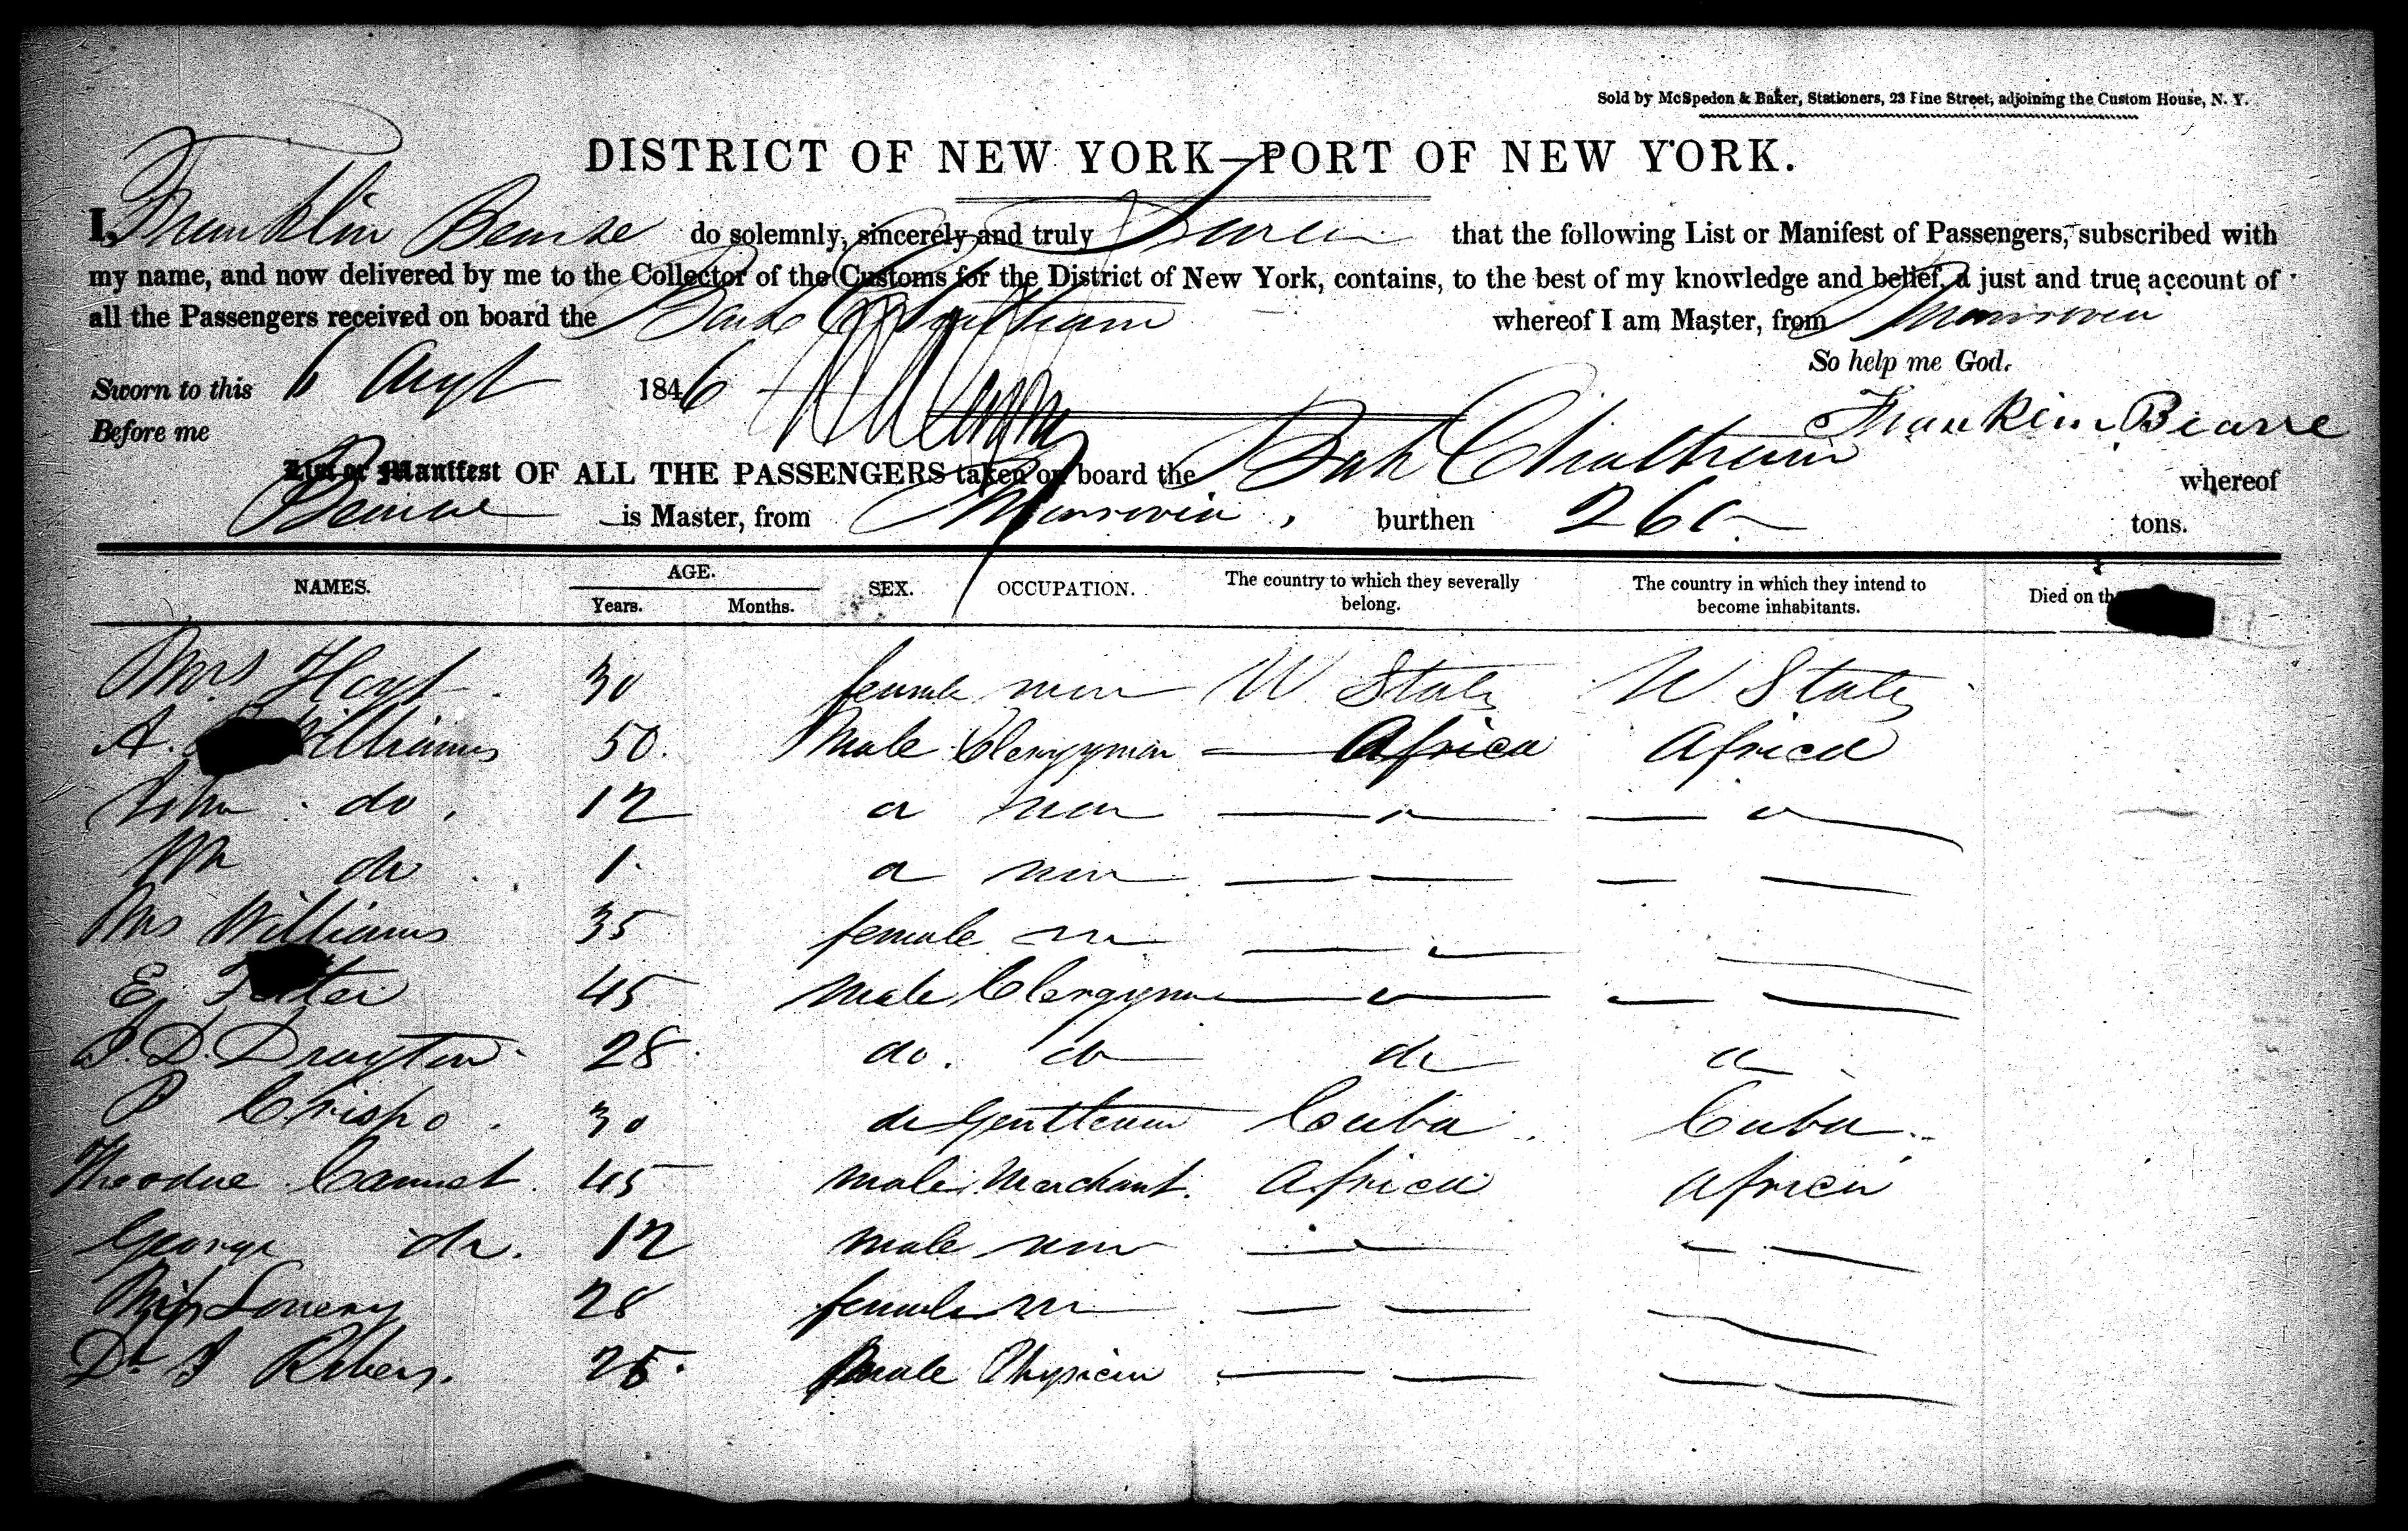 Sold by McSpedon & Baker, Stationers, 23 Pine Street, adjoining the Custom House, N. Y.
DISTRICT OF NEW YORK—PORT OF NEW YORK.
I, Franklin Bearse do solemnly, sincerely and truly Swear that the following List or Manifest of Passengers, subscribed with
my name, and now delivered by me to the Collector of the Customs for the District of New York, contains, to the best of my knowledge and belief, a just and true account of
all the Passengers received on board the Bark Chatham whereof I am Master, from Monrovia
So help me God.
Sworn to this 6 Augt 1846
Franklin Bearse
Before me
List or Manifest OF ALL THE PASSENGERS taken on board the Bark Chatham whereof
Bearse is Master, from Monrovia, burthen 260 tons.
NAMES. AGE. Years. Months. SEX. OCCUPATION. The country to which they severally belong. The country in which they intend to become inhabitants. Died on th
Mrs Hoyt. 30 female non U States U States
A. Williams 50. Male Clergyman — Africa Africa
do. 12 do non
Wm do 1. do non
Mrs Williams 35 female
E. 45 Male Clergyman
J. D. Drayton 28. do. do do do
P Crispo. 30 do Gentleman Cuba. Cuba.
Theodore Cannot. 45 male Merchant. Africa Africa
George do. 12 male non
Miss 28 female
Dr J 25. Male Physician